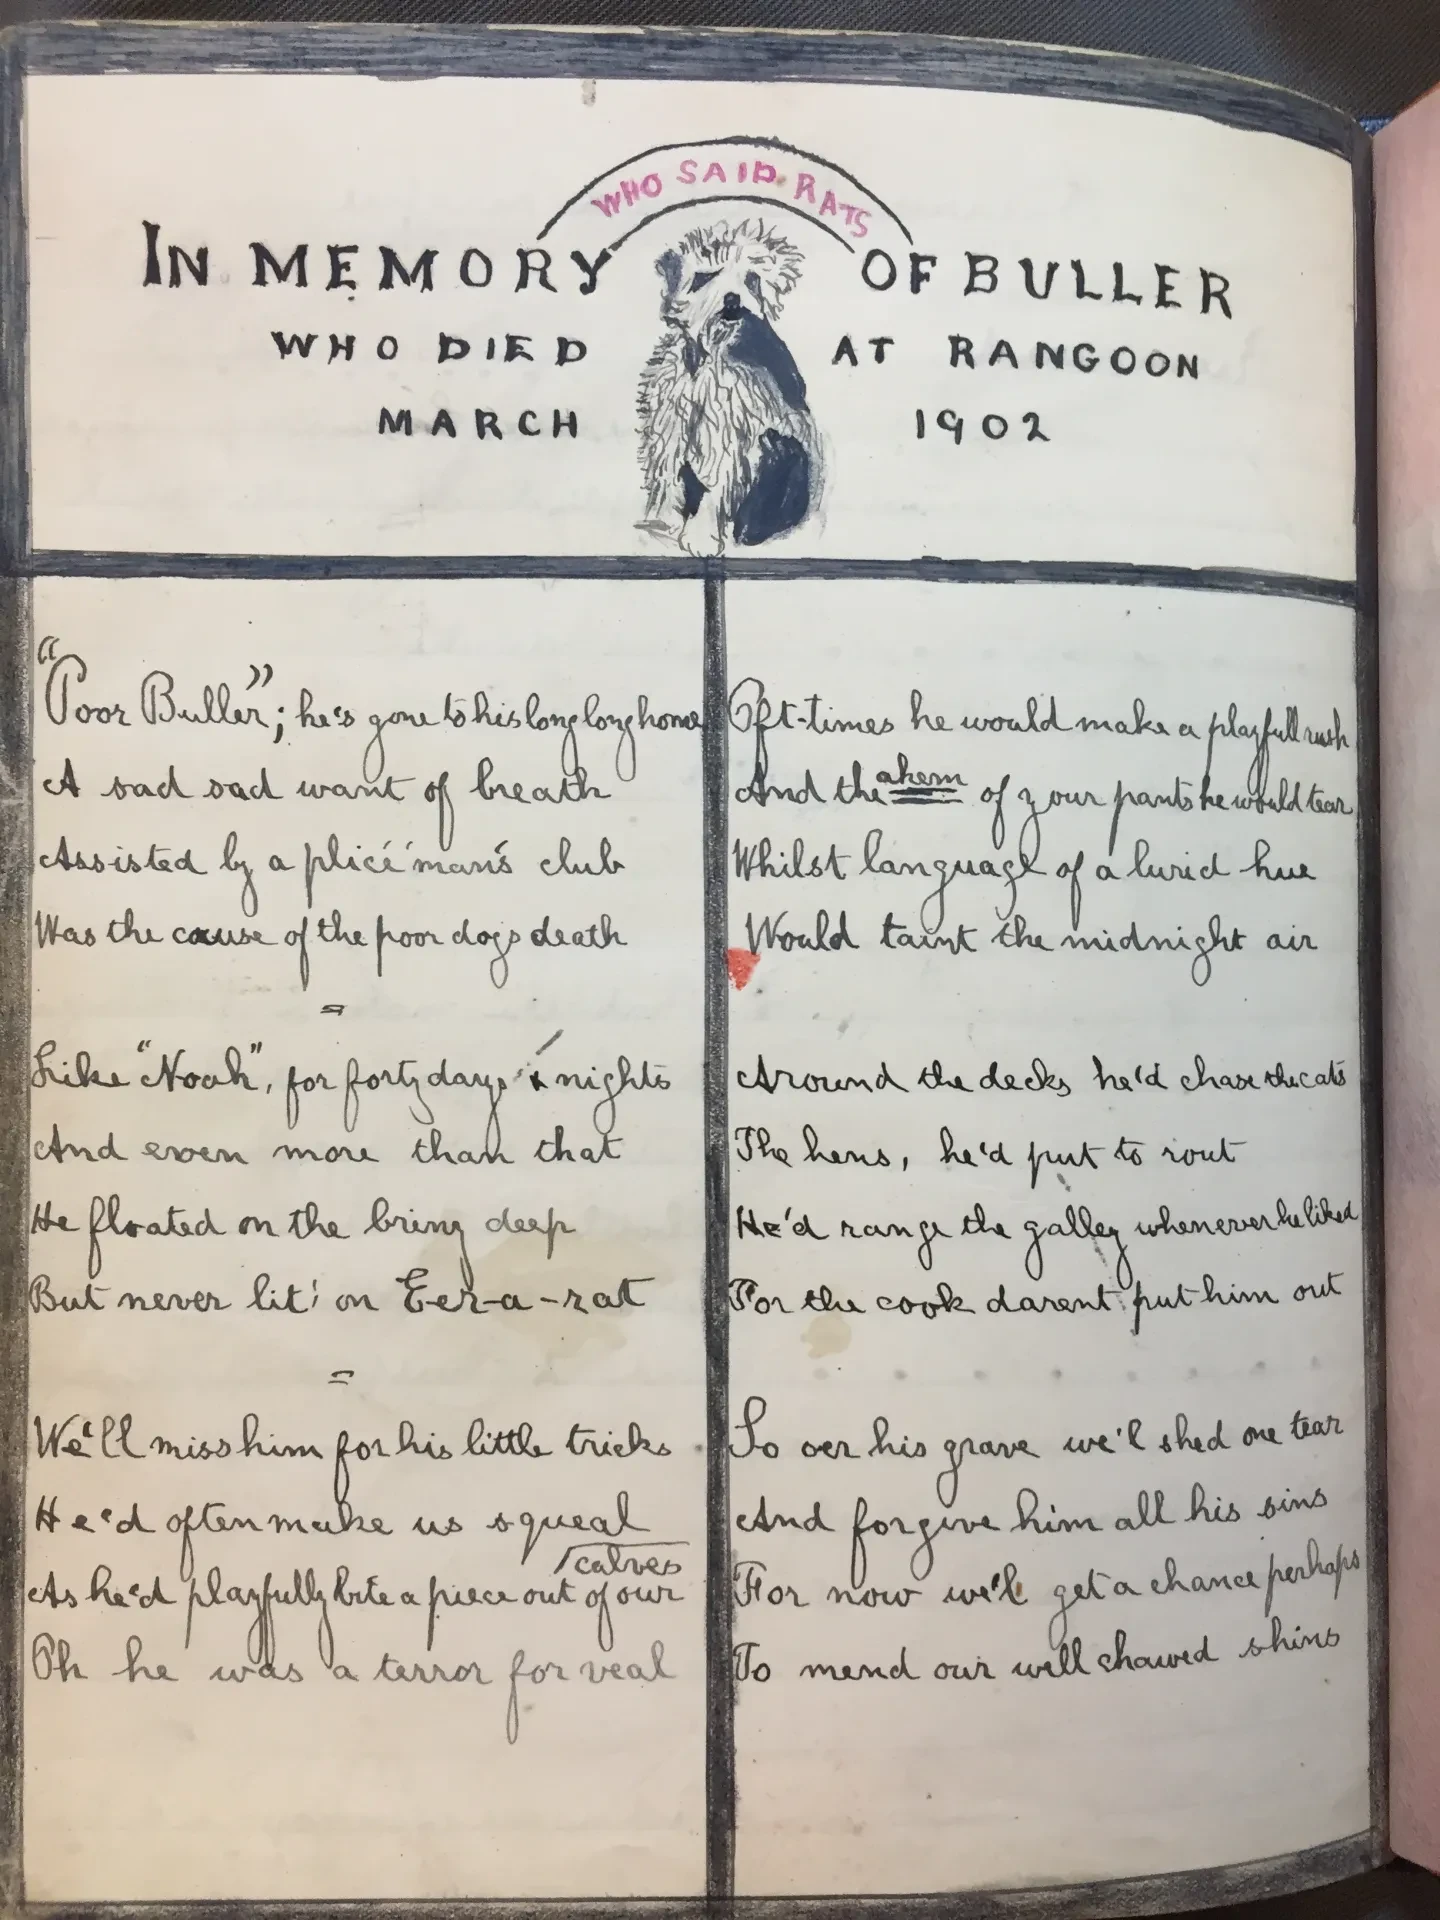 WHO SAID RATS
IN MEMORY OF BULLER
WHO DIED AT RANGOON
MARCH 1902
"Poor Buller"; he's gone to his long long home
A sad sad want of breath
Assisted by a plice'man's club
Was the cause of the poor dogs death
=
Like "Noah", for forty days & nights
And even more than that
He floated on the briny deep
But never lit' on E-er-a-rat
=
We'll miss him for his little tricks
He'd often make us squeal
As he'd playfully bite a piece out of our calves
Oh he was a terror for veal
Oft-times he would make a playfull rush
And the ahem of your pants he would tear
Whilst language of a lurid hue
Would taint the midnight air
Around the decks he'd chase the cats
The hens, he'd put to rout
He'd range the galley whenever he liked
For the cook darent put him out
So oer his grave we'l shed one tear
And forgive him all his sins
For now we'l get a chance perhaps
To mend our well chawed shins